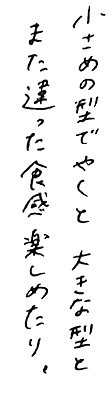 小さめの型でやくと 大きな型と
また違った食感楽しめたり。